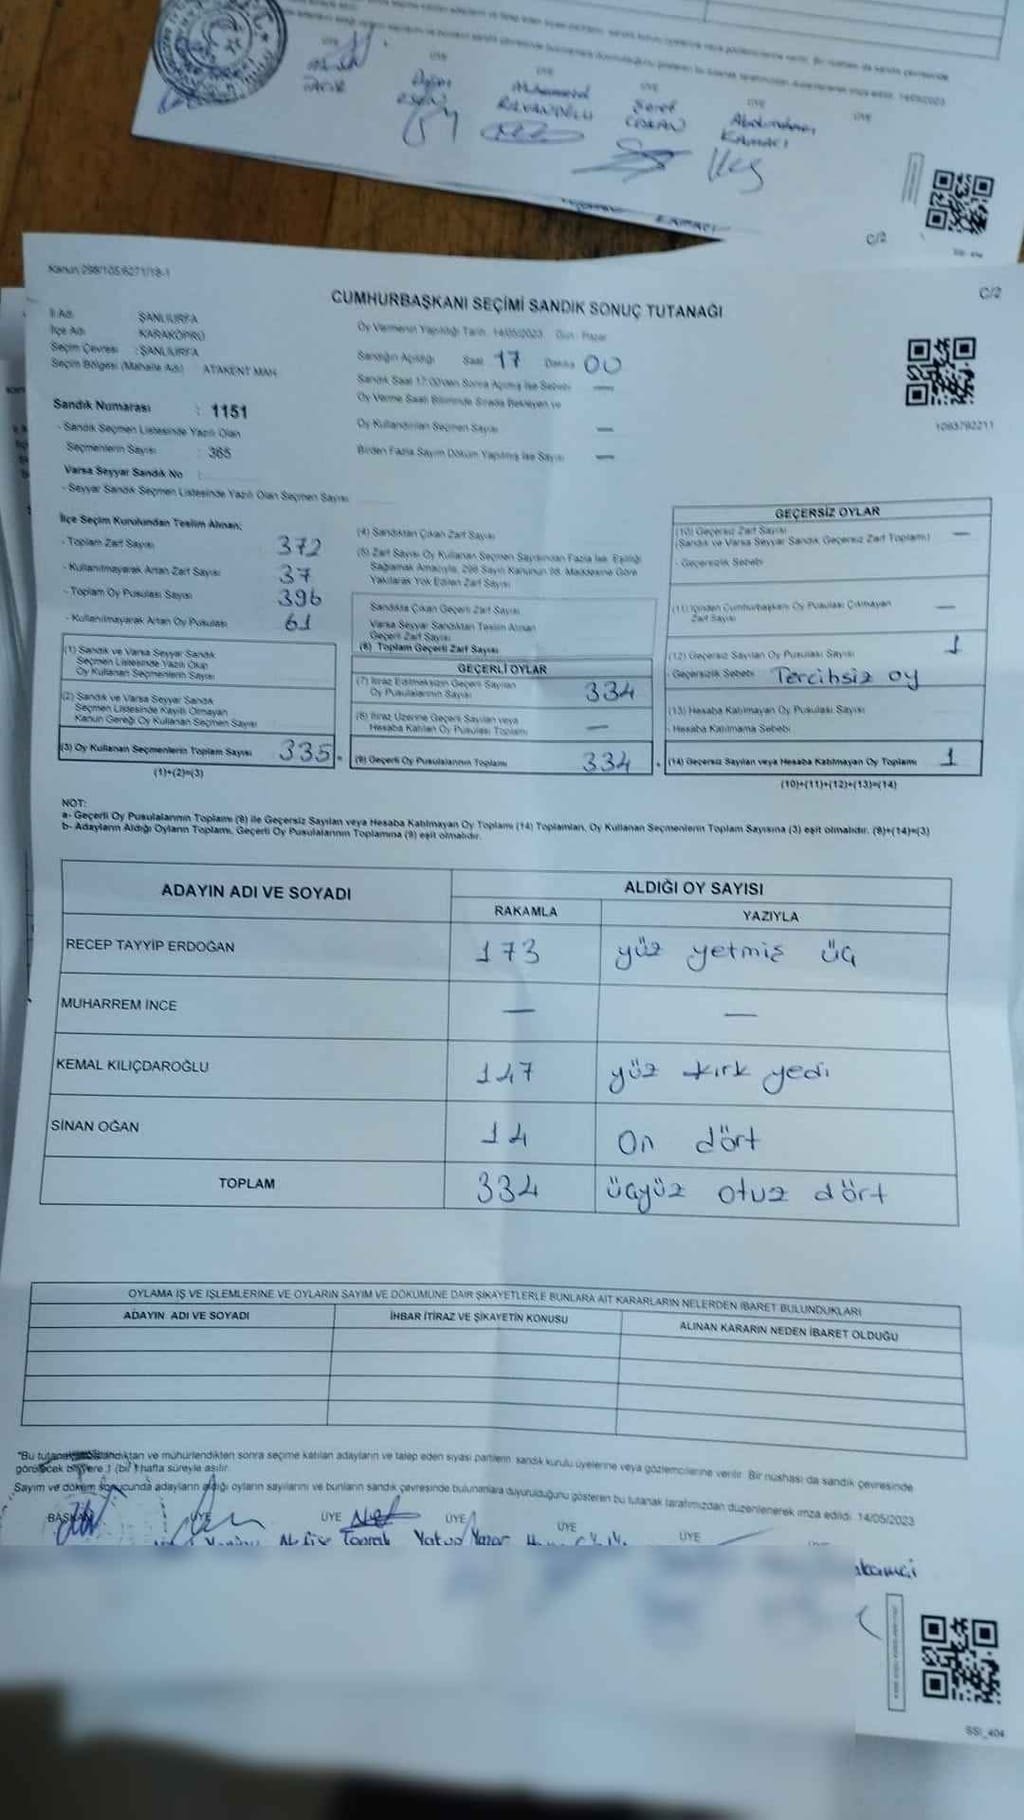 ÜYE
ÜYE
ÜYE
ÜYE
ÜYE
Muhammed
Şeref
KAMACI
C/2
Kanun 298/105/6271/18-1
C/2
CUMHURBAŞKANI SEÇİMİ SANDIK SONUÇ TUTANAĞI
İl Adı ŞANLIURFA
İlçe Adı KARAKÖPRÜ
Seçim Çevresi : ŞANLIURFA
Seçim Bölgesi (Mahalle Adı) ATAKENT MAH.
Oy Vermenin Yapıldığı Tarih 14/05/2023 Gün Pazar
Sandığın Açıldığı Saat 17 Dakika 00
Sandık Saat 17:00'den Sonra Açılmış İse Sebebi —
Oy Verme Saati Bitiminde Sırada Bekleyen ve
Oy Kullandırılan Seçmen Sayısı —
Birden Fazla Sayım Döküm Yapılmış İse Sayısı —
1093792211
Sandık Numarası : 1151
- Sandık Seçmen Listesinde Yazılı Olan
Seçmenlerin Sayısı : 365
Varsa Seyyar Sandık No :
- Seyyar Sandık Seçmen Listesinde Yazılı Olan Seçmen Sayısı
İlçe Seçim Kurulundan Teslim Alınan;
- Toplam Zarf Sayısı 372
- Kullanılmayarak Artan Zarf Sayısı 37
- Toplam Oy Pusulası Sayısı 396
- Kullanılmayarak Artan Oy Pusulası 61
(1) Sandık ve Varsa Seyyar Sandık
Seçmen Listesinde Yazılı Olup
Oy Kullanan Seçmenlerin Sayısı
(2) Sandık ve Varsa Seyyar Sandık
Seçmen Listesinde Kayıtlı Olmayan
Kanun Gereği Oy Kullanan Seçmen Sayısı
(3) Oy Kullanan Seçmenlerin Toplam Sayısı 335
(1)+(2)=(3)
(4) Sandıktan Çıkan Zarf Sayısı
(5) Zarf Sayısı Oy Kullanan Seçmen Sayısından Fazla İse, Eşitliği
Sağlamak Amacıyla, 298 Sayılı Kanunun 98. Maddesine Göre
Yakılarak Yok Edilen Zarf Sayısı
Sandıkta Çıkan Geçerli Zarf Sayısı
Varsa Seyyar Sandıktan Teslim Alınan
Geçerli Zarf Sayısı
(6) Toplam Geçerli Zarf Sayısı
GEÇERLİ OYLAR
(7) İtiraz Edilmeksizin Geçerli Sayılan
Oy Pusulalarının Sayısı 334
(8) İtiraz Üzerine Geçerli Sayılan veya
Hesaba Katılan Oy Pusulası Toplamı —
(9) Geçerli Oy Pusulalarının Toplamı 334
GEÇERSİZ OYLAR
(10) Geçersiz Zarf Sayısı —
(Sandık ve Varsa Seyyar Sandık Geçersiz Zarf Toplamı)
- Geçersizlik Sebebi
(11) İçinden Cumhurbaşkanı Oy Pusulası Çıkmayan
Zarf Sayısı —
(12) Geçersiz Sayılan Oy Pusulası Sayısı 1
- Geçersizlik Sebebi Tercihsiz oy
(13) Hesaba Katılmayan Oy Pusulası Sayısı
- Hesaba Katılmama Sebebi
(14) Geçersiz Sayılan veya Hesaba Katılmayan Oy Toplamı 1
(10)+(11)+(12)+(13)=(14)
NOT:
a- Geçerli Oy Pusulalarının Toplamı (9) ile Geçersiz Sayılan veya Hesaba Katılmayan Oy Toplamı (14) Toplamları, Oy Kullanan Seçmenlerin Toplam Sayısına (3) eşit olmalıdır. (9)+(14)=(3)
b- Adayların Aldığı Oyların Toplamı, Geçerli Oy Pusulalarının Toplamına (9) eşit olmalıdır.
ADAYIN ADI VE SOYADI
ALDIĞI OY SAYISI
RAKAMLA YAZIYLA
RECEP TAYYİP ERDOĞAN 173 yüz yetmiş üç
MUHARREM İNCE — —
KEMAL KILIÇDAROĞLU 147 yüz kırk yedi
SİNAN OĞAN 14 on dört
TOPLAM 334 üçyüz otuz dört
OYLAMA İŞ VE İŞLEMLERİNE VE OYLARIN SAYIM VE DÖKÜMÜNE DAİR ŞİKAYETLERLE BUNLARA AİT KARARLARIN NELERDEN İBARET BULUNDUKLARI
ADAYIN ADI VE SOYADI İHBAR İTİRAZ VE ŞİKAYETİN KONUSU ALINAN KARARIN NEDEN İBARET OLDUĞU
"Bu tutanak ve mühürlendikten sonra seçime katılan adayların ve talep eden siyasi partilerin sandık kurulu üyelerine veya gözlemcilerine verilir. Bir nüshası da sandık çevresinde
görülecek bir yere 1 (bir) hafta süreyle asılır.
Sayım ve döküm sonucunda adayların aldığı oyların sayılarını ve bunların sandık çevresinde bulunanlara duyurulduğunu gösteren bu tutanak tarafımızdan düzenlenerek imza edildi. 14/05/2023
BAŞKAN ÜYE ÜYE ÜYE ÜYE ÜYE
Toprak Yazar
SSI_404